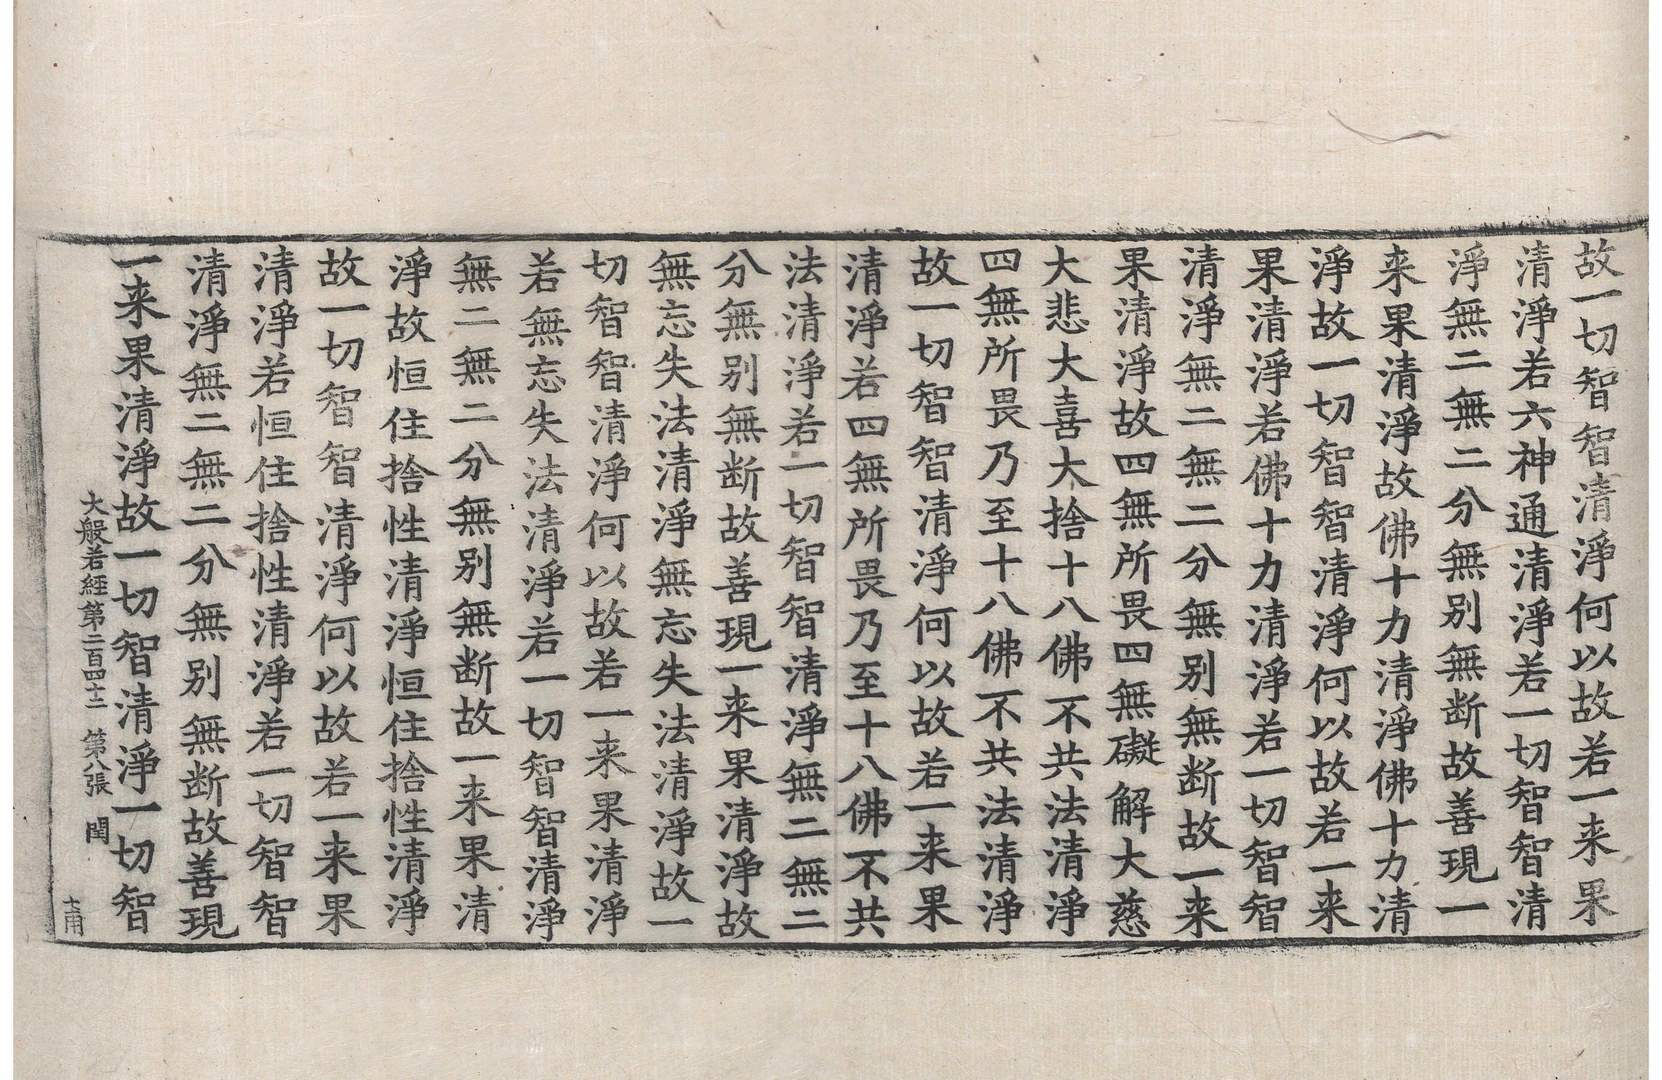 故一切智智清淨何以故若一来果
清淨若六神通清淨若一切智智清
淨無二無二分無别無断故善現一
来果清淨故佛十力清淨佛十力清
淨故一切智智清淨何以故若一来
果清淨若佛十力清淨若一切智智
清淨無二無二分無别無断故一来
果清淨故四無所畏四無礙解大慈
大悲大喜大捨十八佛不共法清淨
四無所畏乃至十八佛不共法清淨
故一切智智清淨何以故若一来果
清淨若四無所畏乃至十八佛不共
法清淨若一切智智清淨無二無二
分無别無断故善現一来果清淨故
無忘失法清淨無忘失法清淨故一
切智智清淨何以故若一来果清淨
若無忘失法清淨若一切智智清淨
無二無二分無别無断故一来果清
淨故恒住捨性清淨恒住捨性清淨
故一切智智清淨何以故若一来果
清淨若恒住捨性清淨若一切智智
清淨無二無二分無别無断故善現
一来果清淨故一切智清淨一切智
大般若經第二百四十二 第八張 閏